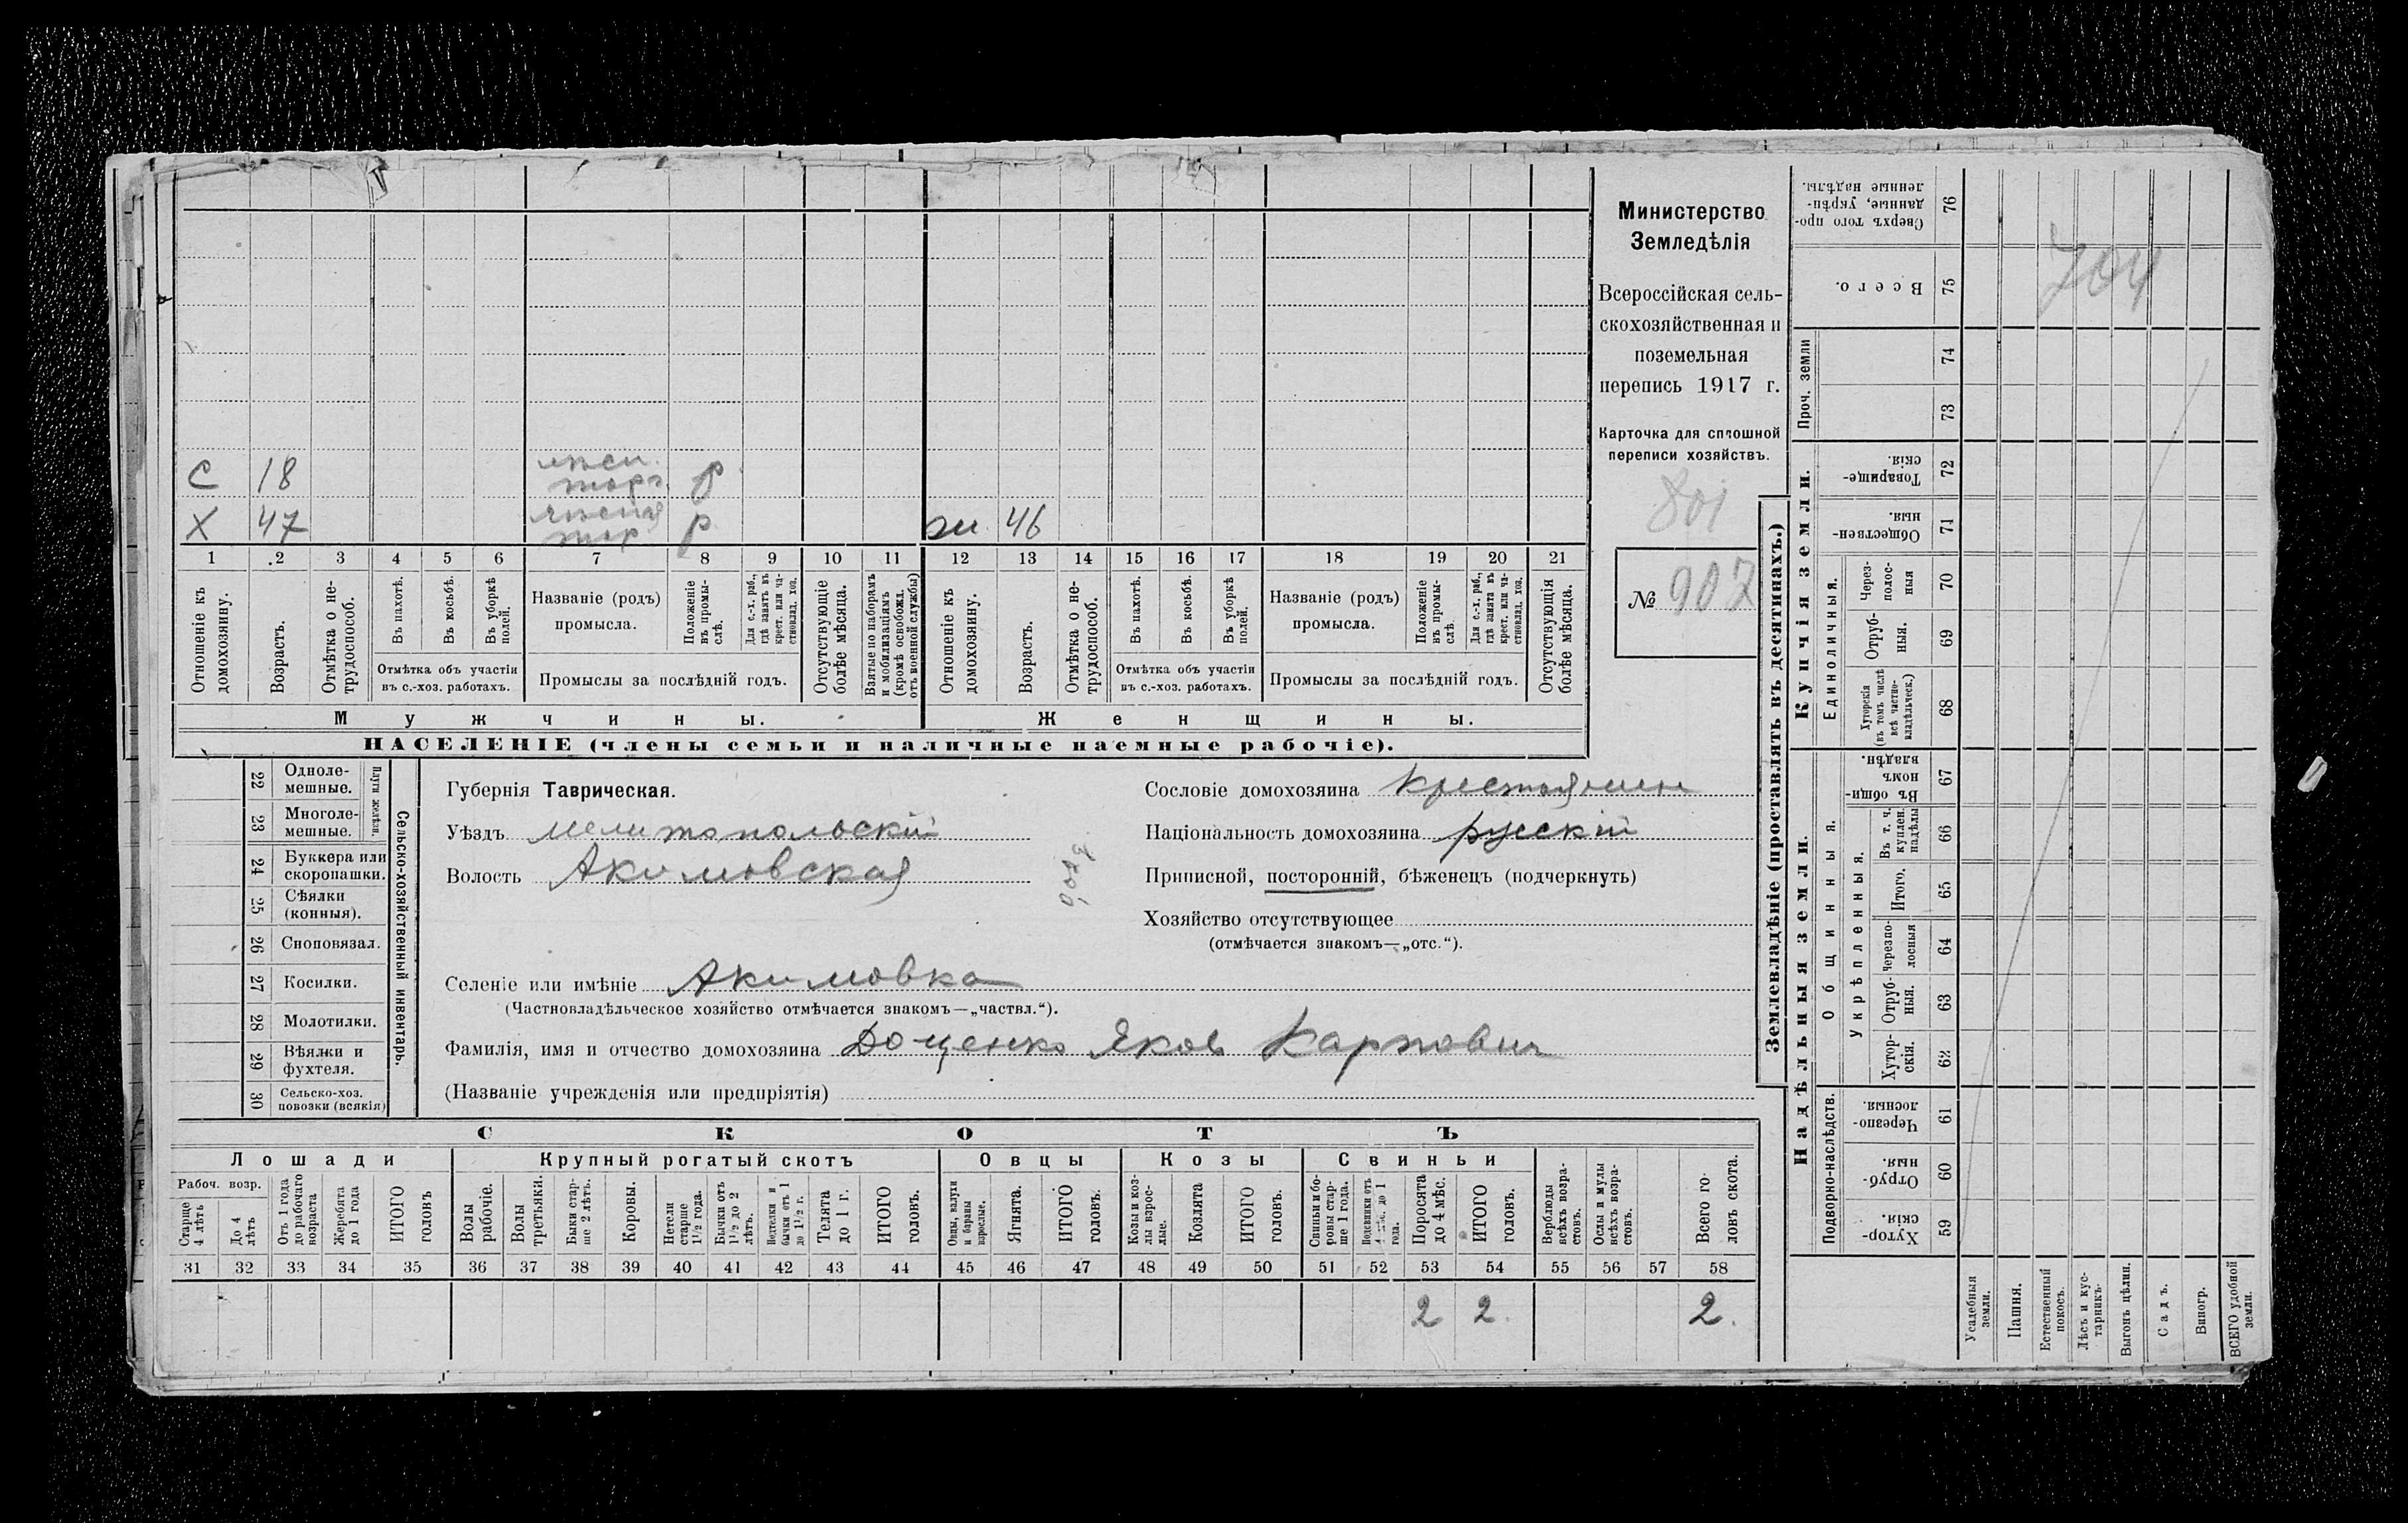 Министерство
Земледѣлія
Всероссійская сель-
скохозяйственная и
поземельная
перепись 1917 г.
Карточка для сплошной
переписи хозяйствъ.
801
№ 907
С 18 торг. р
Х 47 тор р
ж 46
1 2 3 4 5 6 7 8 9 10 11 12 13 14 15 16 17 18 19 20 21
Отношеніе къ домохозяину.
Возрастъ.
Отмѣтка о не-трудоспособ.
Въ пахотѣ.
Въ косьбѣ.
Въ уборкѣ полей.
Отмѣтка объ участіи
въ с.-хоз. работахъ.
Названіе (родъ)
промысла.
Положеніе въ промы-слѣ.
Для с.-х. раб., гдѣ занятъ въ крест. или ча-стновлад. хоз.
Промыслы за послѣдній годъ.
Отсутствующіе болѣе мѣсяца.
Взятые по наборамъ и мобилизаціямъ (кромѣ освобожд. отъ военной службы)
Отношеніе къ домохозяину.
Возрастъ.
Отмѣтка о не-трудоспособ.
Въ пахотѣ.
Въ косьбѣ.
Въ уборкѣ полей.
Отмѣтка объ участіи
въ с.-хоз. работахъ.
Названіе (родъ)
промысла.
Положеніе въ промы-слѣ.
Для с.-х. раб., гдѣ занята въ крест. или ча-стновлад. хоз.
Промыслы за послѣдній годъ.
Отсутствующія болѣе мѣсяца.
Мужчины. Женщины.
НАСЕЛЕНІЕ (члены семьи и наличные наемные рабочіе).
22 Одноле-мешные.
23 Многоле-мешные.
Плуги желѣзн.
24 Буккера или скоропашки.
25 Сѣялки (конныя).
26 Сноповязал.
27 Косилки.
28 Молотилки.
29 Вѣялки и фухтеля.
30 Сельско-хоз. повозки (всякія)
Сельско-хозяйственный инвентарь.
Губернія Таврическая.
Уѣздъ Мелитопольскій
Волость Акимовская
Сословіе домохозяина Крестьянин
Національность домохозяина русскій
Приписной, посторонній, бѣженецъ (подчеркнуть)
Хозяйство отсутствующее
(отмѣчается знакомъ—„отс.“).
Селеніе или имѣніе Акимовка
(Частновладѣльческое хозяйство отмѣчается знакомъ—„частвл.“).
Фамилія, имя и отчество домохозяина Доценко Яков Карпович
(Названіе учрежденія или предпріятія)
СКОТЪ
Лошади Крупный рогатый скотъ Овцы Козы Свиньи
Рабоч. возр.
Старше 4 лѣтъ
До 4 лѣтъ
Отъ 1 года до рабочаго возраста
Жеребята до 1 года
ИТОГО головъ
Волы рабочіе.
Волы третьяки.
Быки стар-ше 2 лѣтъ.
Коровы.
Нетели старше 1½ года.
Бычки отъ 1½ до 2 лѣтъ.
Нетелки и бычки отъ 1 до 1½ г.
Телята до 1 г.
ИТОГО головъ.
Овцы, валухи и бараны взрослые.
Ягнята.
ИТОГО головъ.
Козы и коз-лы взрос-лые.
Козлята
ИТОГО головъ.
Свиньи и бо-ровы стар-ше 1 года.
Поросята до 4 мѣс.
ИТОГО головъ.
Верблюды всѣхъ возра-стовъ.
Ослы и мулы всѣхъ возра-стовъ.
Всего го-ловъ скота.
31 32 33 34 35 36 37 38 39 40 41 42 43 44 45 46 47 48 49 50 51 52 53 54 55 56 57 58
2 2 2.
Землевладѣніе (проставлять въ десятинахъ.)
Надѣльныя земли. Купчія земли.
Подворно-наслѣдств.
Общинныя.
Укрѣпленныя.
Единоличныя.
Проч. земли
Сверхъ того про-данные, укрѣп-ленные надѣлы. 76
Всего. 75
74
73
Товарище-скія. 72
Обществен-ныя. 71
Через-полос-ныя 70
Отруб-ныя. 69
Хуторскія (въ томъ числѣ всѣ частно-владѣльческ.) 68
Въ общи-номъ владѣн. 67
Въ т. ч. куплен. надѣлы 66
Итого. 65
Черезпо-лосныя 64
Отруб-ныя. 63
Хутор-скія. 62
Черезпо-лосныя. 61
Отруб-ныя. 60
Хутор-скія. 59
Усадебныя земли.
Пашня.
Естественный покосъ.
Лѣсъ и кус-тарникъ.
Выгонъ цѣлин.
Садъ.
Виногр.
ВСЕГО удобной земли.
704